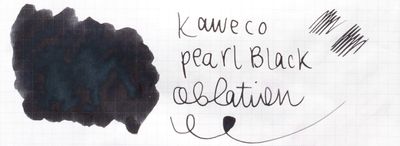 Kaweco
pearl Black
Oblation